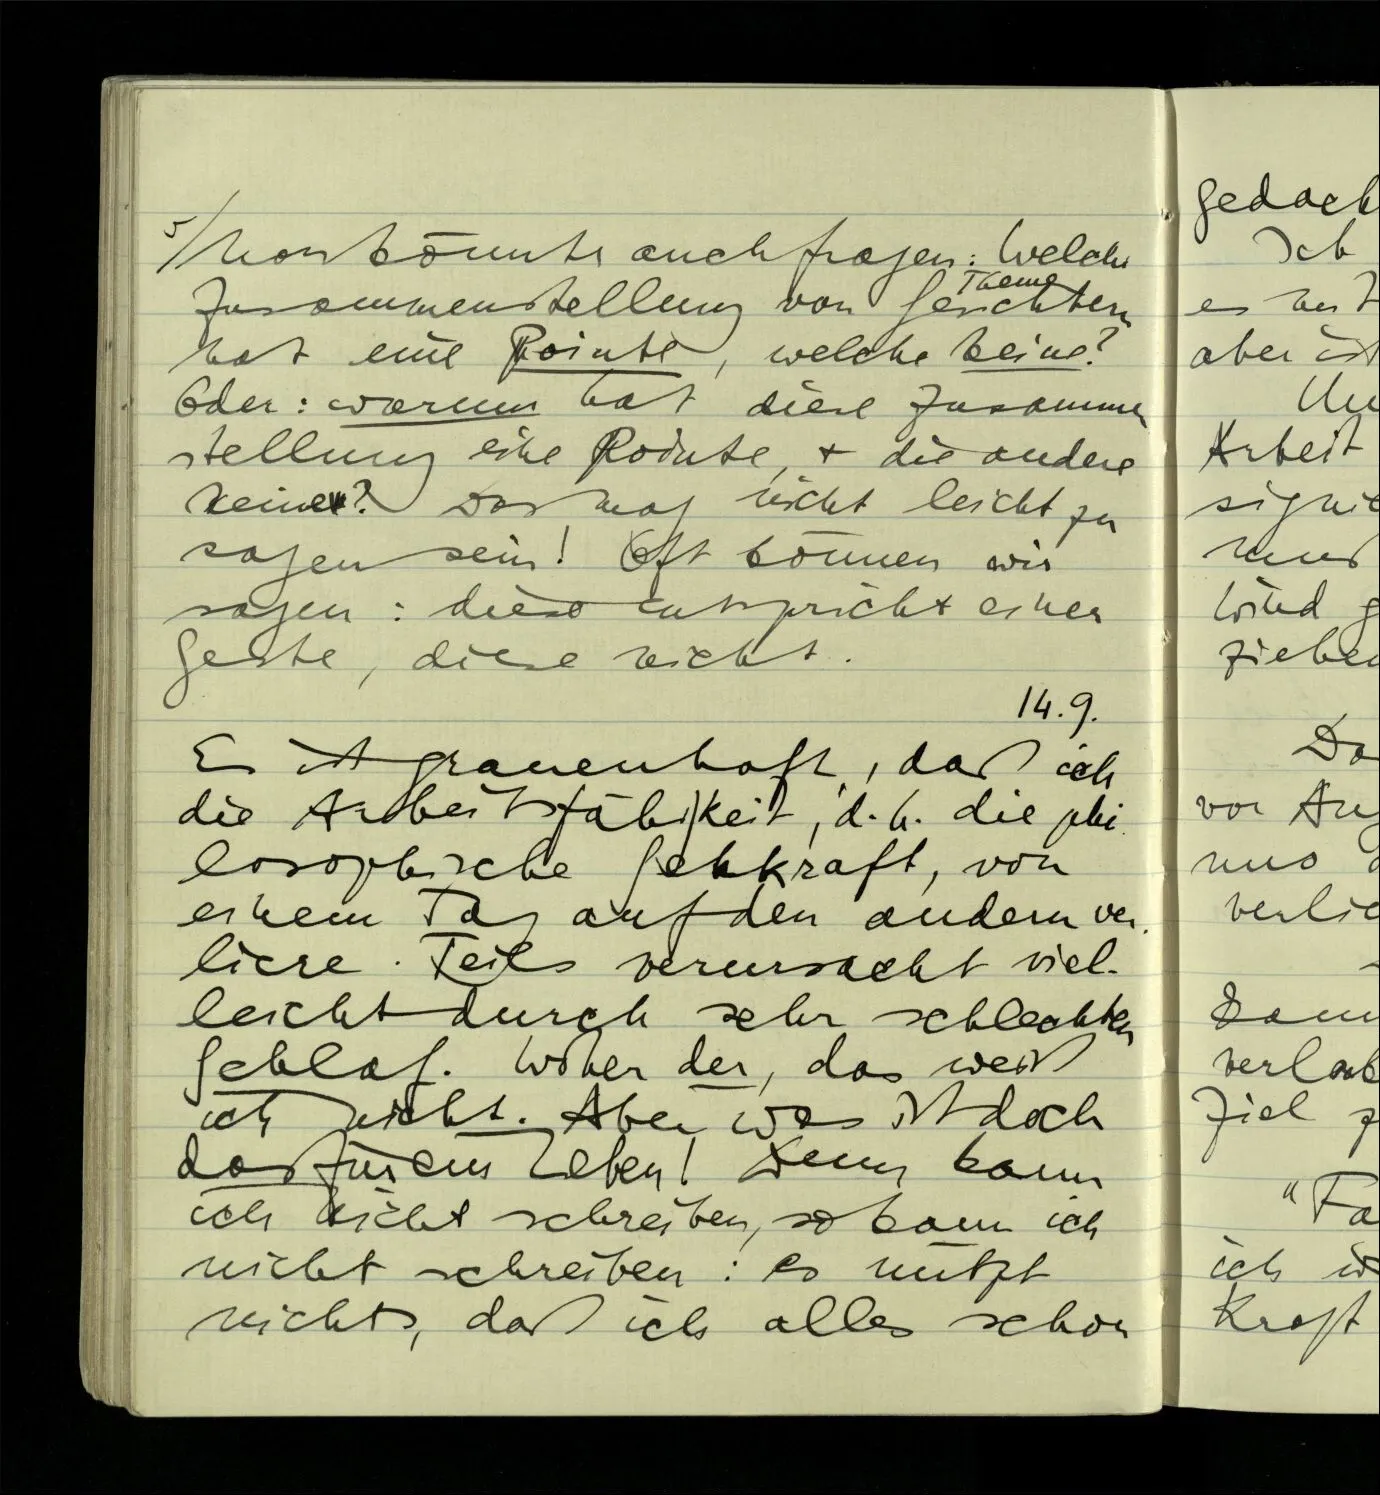 5/ Man könnte auch fragen: Welche
Theme
Zusammenstellung von Gesichtern
hat eine Pointe, welche keine?
Oder: warum hat diese Zusammen
stellung eine Pointe, + die andere
keine? Das mag nicht leicht zu
sagen sein! Oft können wir
sagen: diese entspricht einer
Geste, diese nicht.
14.9.
Es ist grauenhaft, daß ich
die Arbeitsfähigkeit, d.h. die phi
losophische Sehkraft, von
einem Tag auf den andern ver
liere. Teils verursacht viel-
leicht durch sehr schlechten
Schlaf. Woher der, das weiß
ich nicht. Aber was ist doch
das für ein Leben! Denn kann
ich nicht schreiben, so kann ich
nicht schreiben: es nützt
nichts, daß ich alles schon
gedach
Ich
es
aber ist
Arbeit
Wind g
ziehen
Da
vor Aug
verlie
kann
Ziel z
"Fa
ich
Kraft